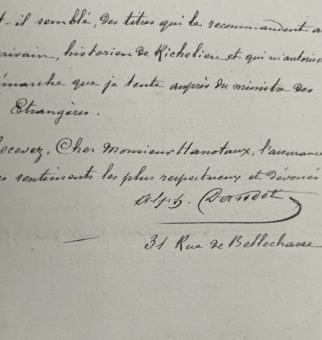 t-il semblé, des titres qui le recommandent a
crivain, historien de Richelieu et qui m'autorise
émarche que je tente auprès du ministre des
Etrangères.
ecevez, Cher Monsieur Hanotaux, l'assurance
es sentiments les plus respectueux et dévoués
Alph. Daudet
31 Rue de Bellechasse